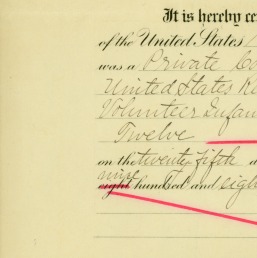 It is hereby ce
of the United States
was a Private Co
United States R
Volunteer Infan
Twelve
on the twenty fifth
nine
eight hundred and eigh